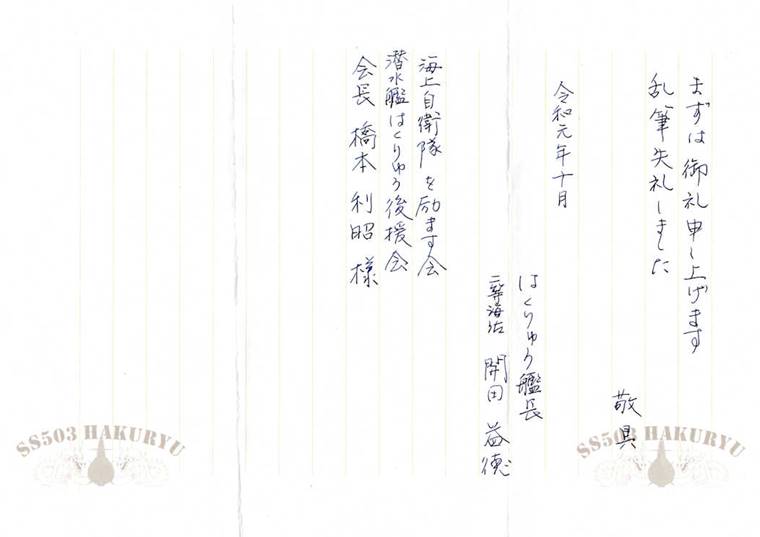 まずは御礼申し上げます
乱筆失礼しました
敬具
令和元年十月
はくりゅう艦長
二等海佐 開田 益徳
海上自衛隊を励ます会
潜水艦はくりゅう後援会
会長 橋本 利昭 様
SS503 HAKURYU
SS503 HAKURYU